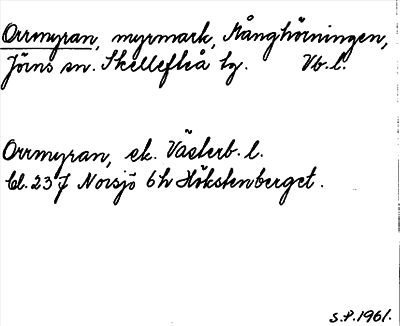 Orrmyran, myrmark, Månghörningen,
Jörns sn. Skellefteå tg. Vb.l.
Orrmyran, ek. Västerb. l.
bl. 23 J Norsjö 6h Hökstenberget.
S.P. 1961.